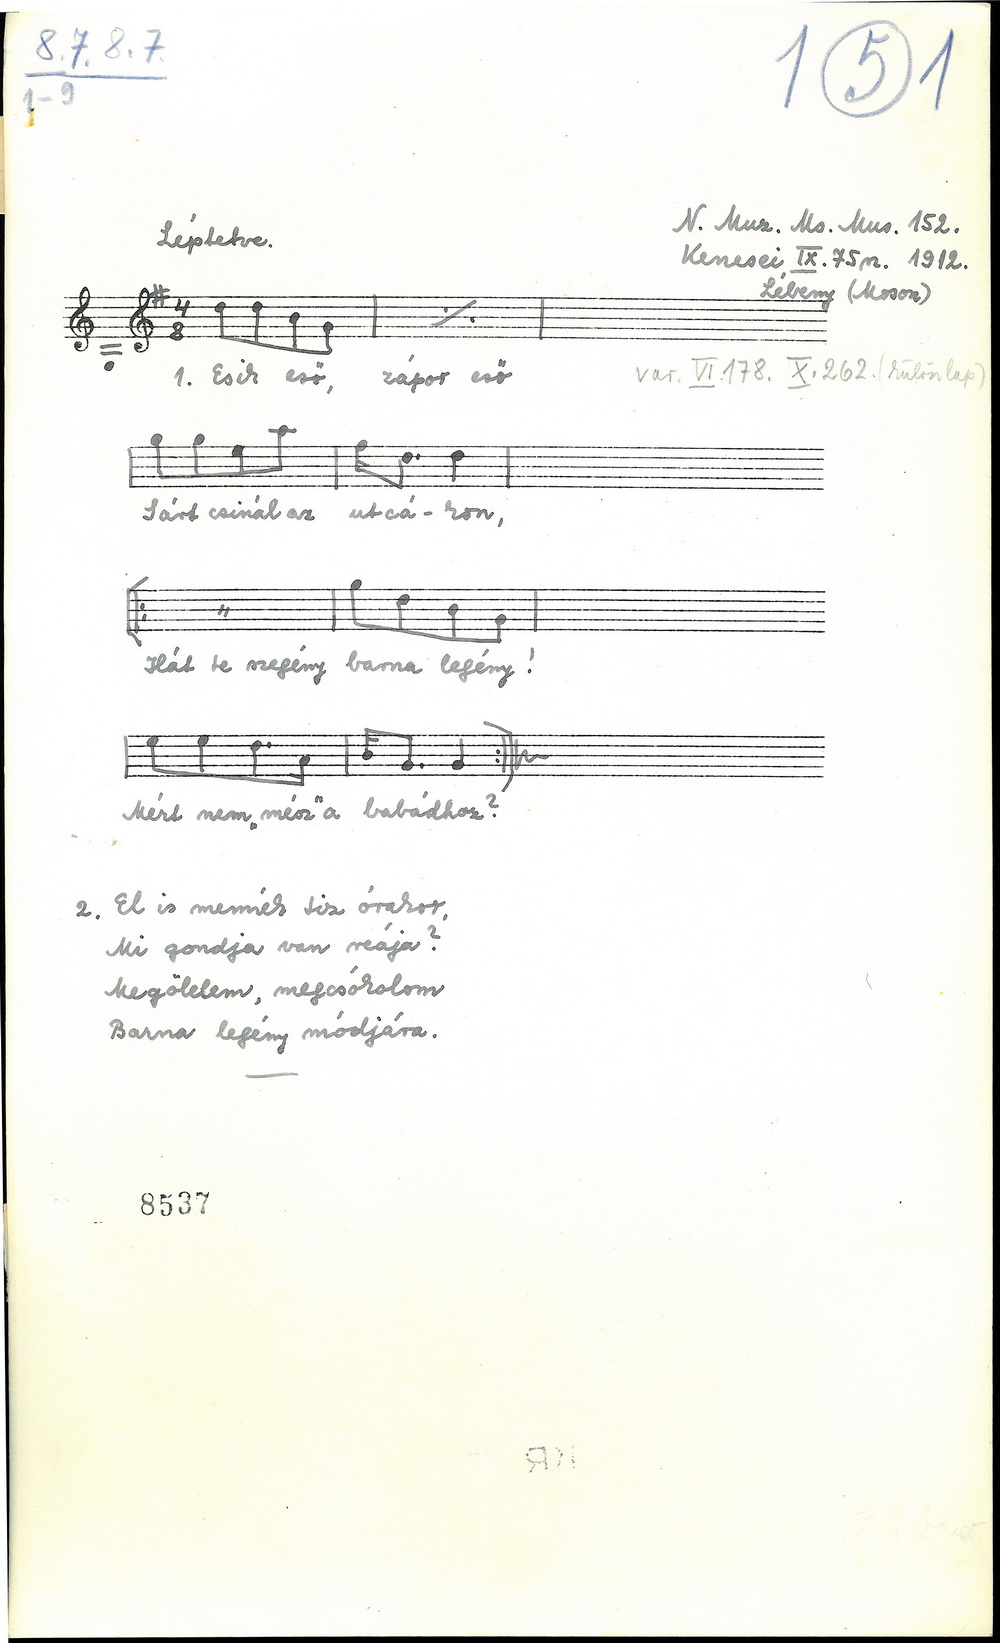 8.7.8.7.
1-9
1 5 1
Léptetve.
N. Muz. Ms. Mus. 152.
Kenesei IX. 75 n. 1912.
Lébeny (Moson)
4
8
1. Esik eső, zápor eső
var. VI. 178. X. 262. (különlap)
Sárt csinál az utcá-kon,
Hát te szegény barna legény!
Mért nem „mész" a babádhoz?
2. El is mennék tiz órakor,
Mi gondja van reája?
Megölelem, megcsókolom
Barna legény módjára.
8537